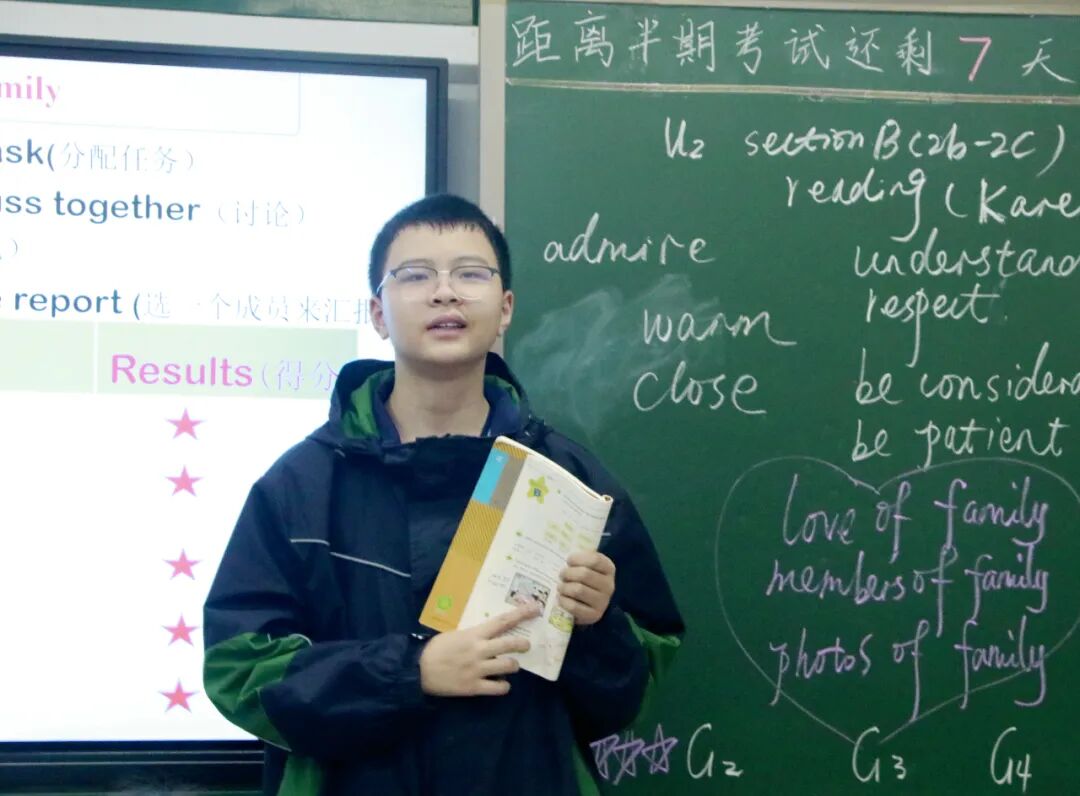 mily
sk(分配任务)
uss together (讨论)
)
e report (选一个成员来汇报
Results(得分
距离半期考试还剩7天
U2 section B(2b-2c)
reading (Kare
admire
understand
respect
warm
close
be considera
be patient
love of family
members of family
photos of family
G2 G3 G4
B